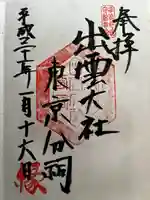 奉拝
出雲大社
東京分祠
平成二十年一月十六日
縁